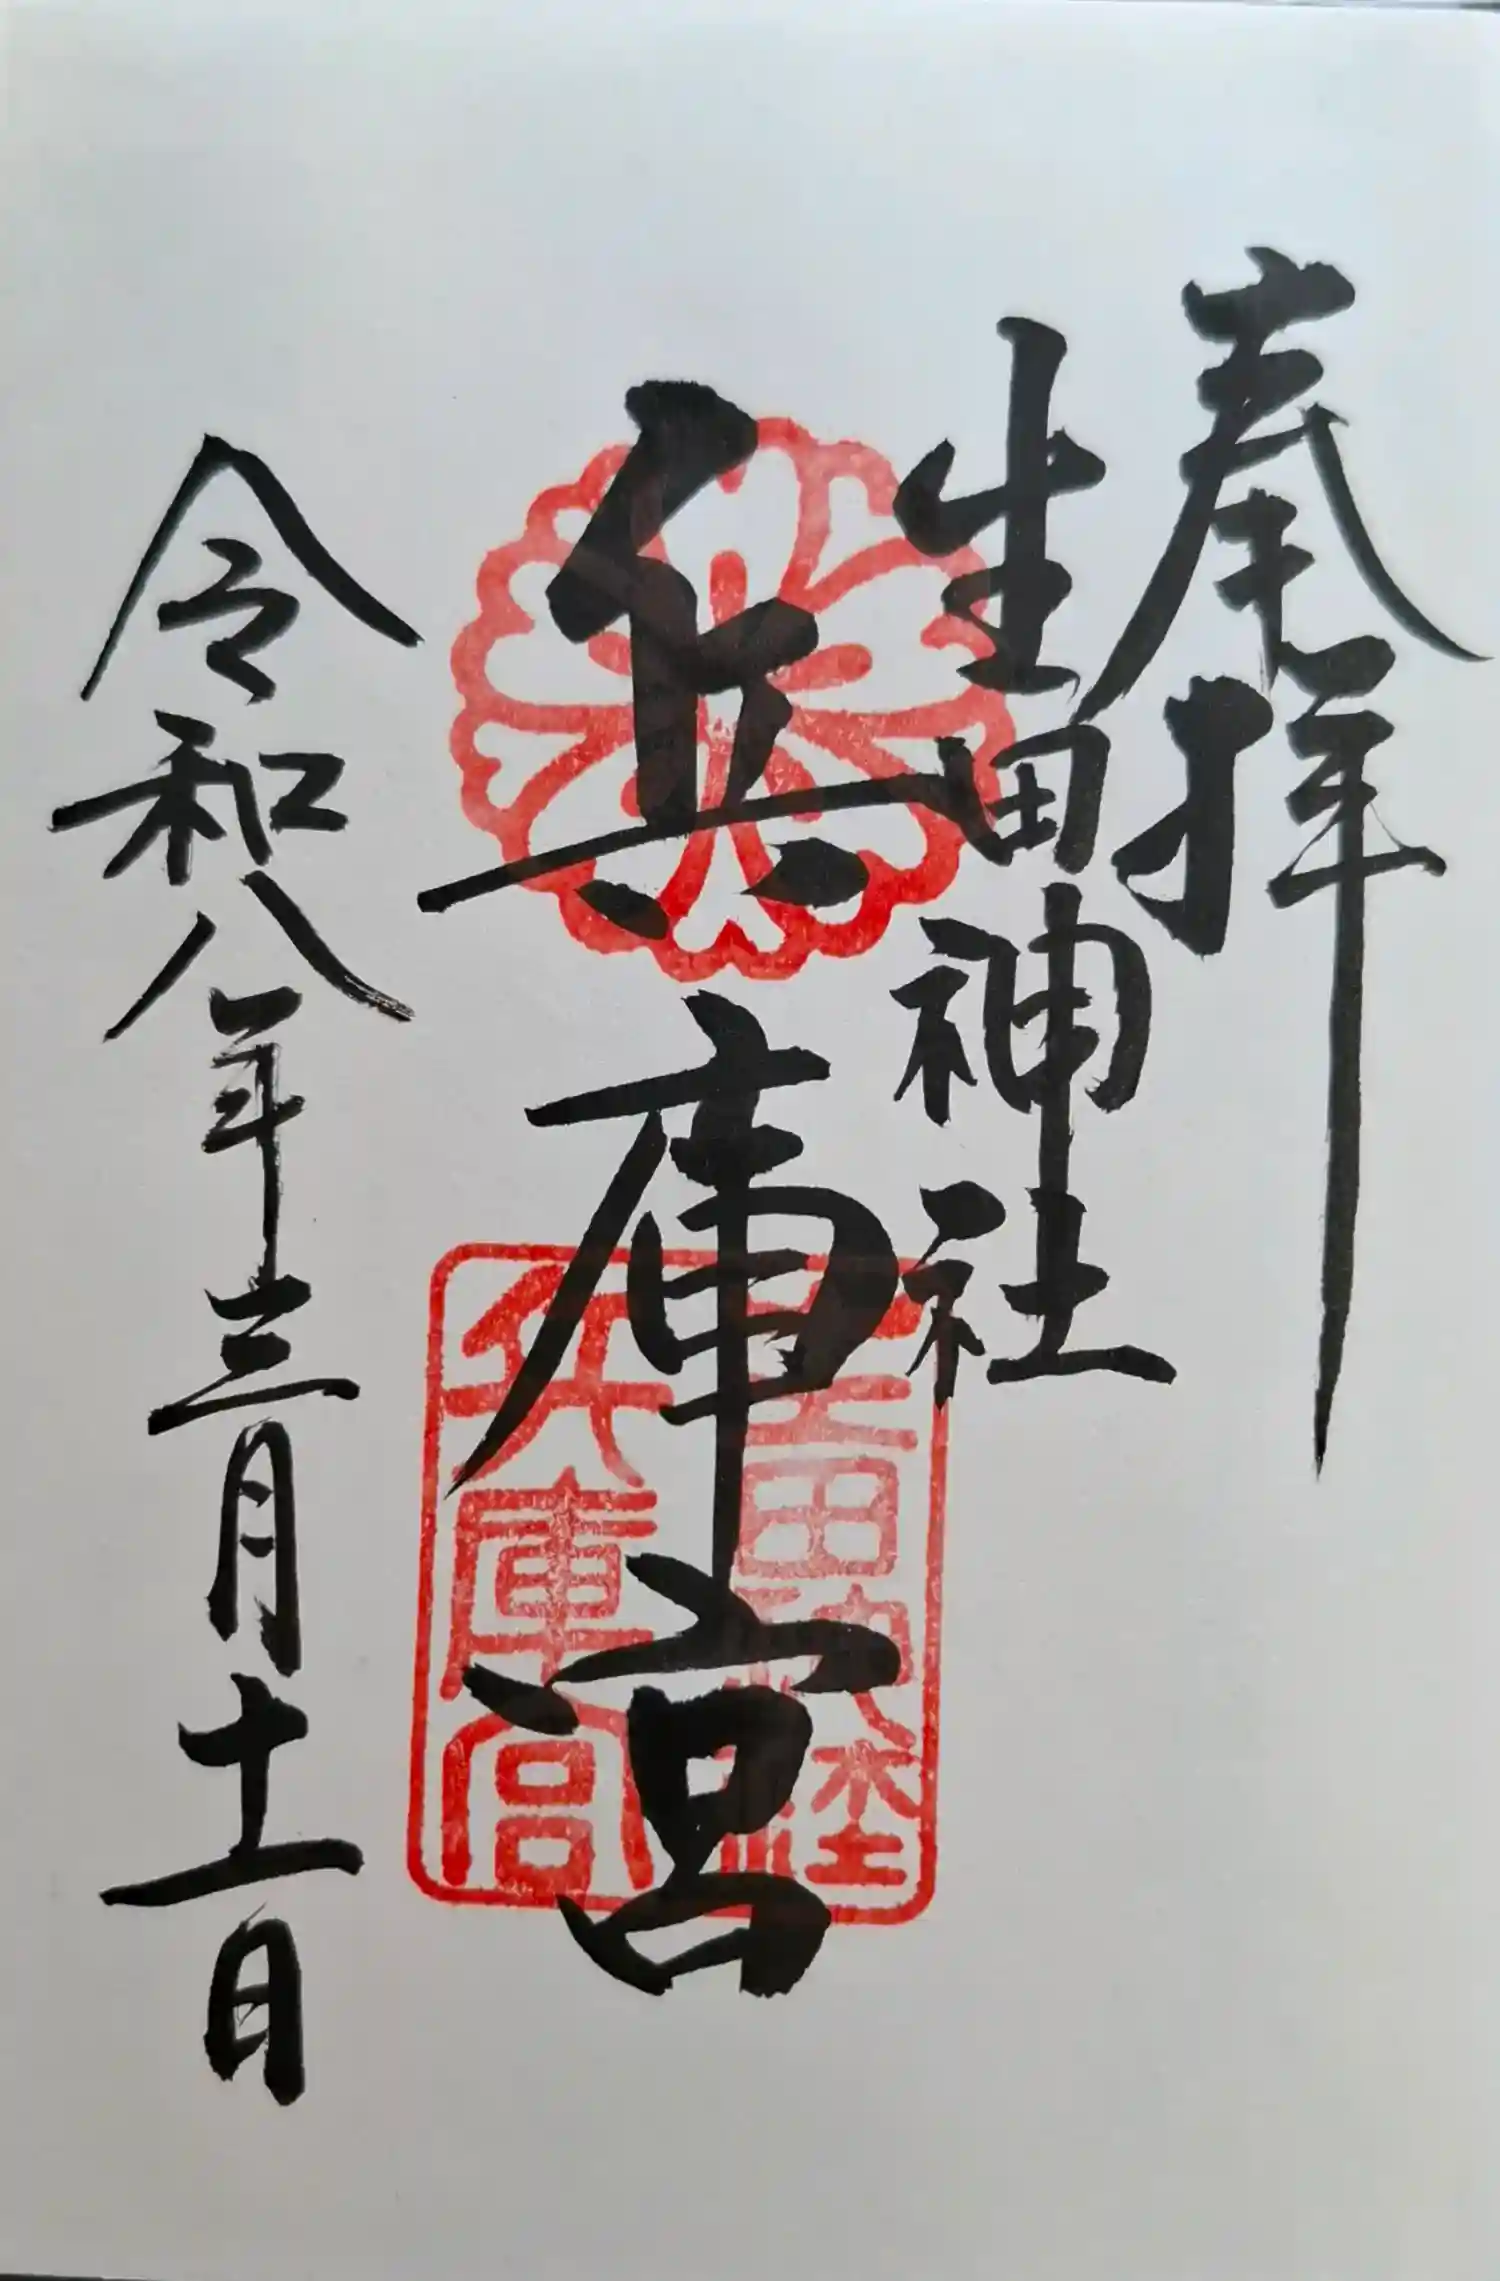 奉拝
生田神社
兵庫宮
令和八年三月十一日
生田神社
兵庫宮